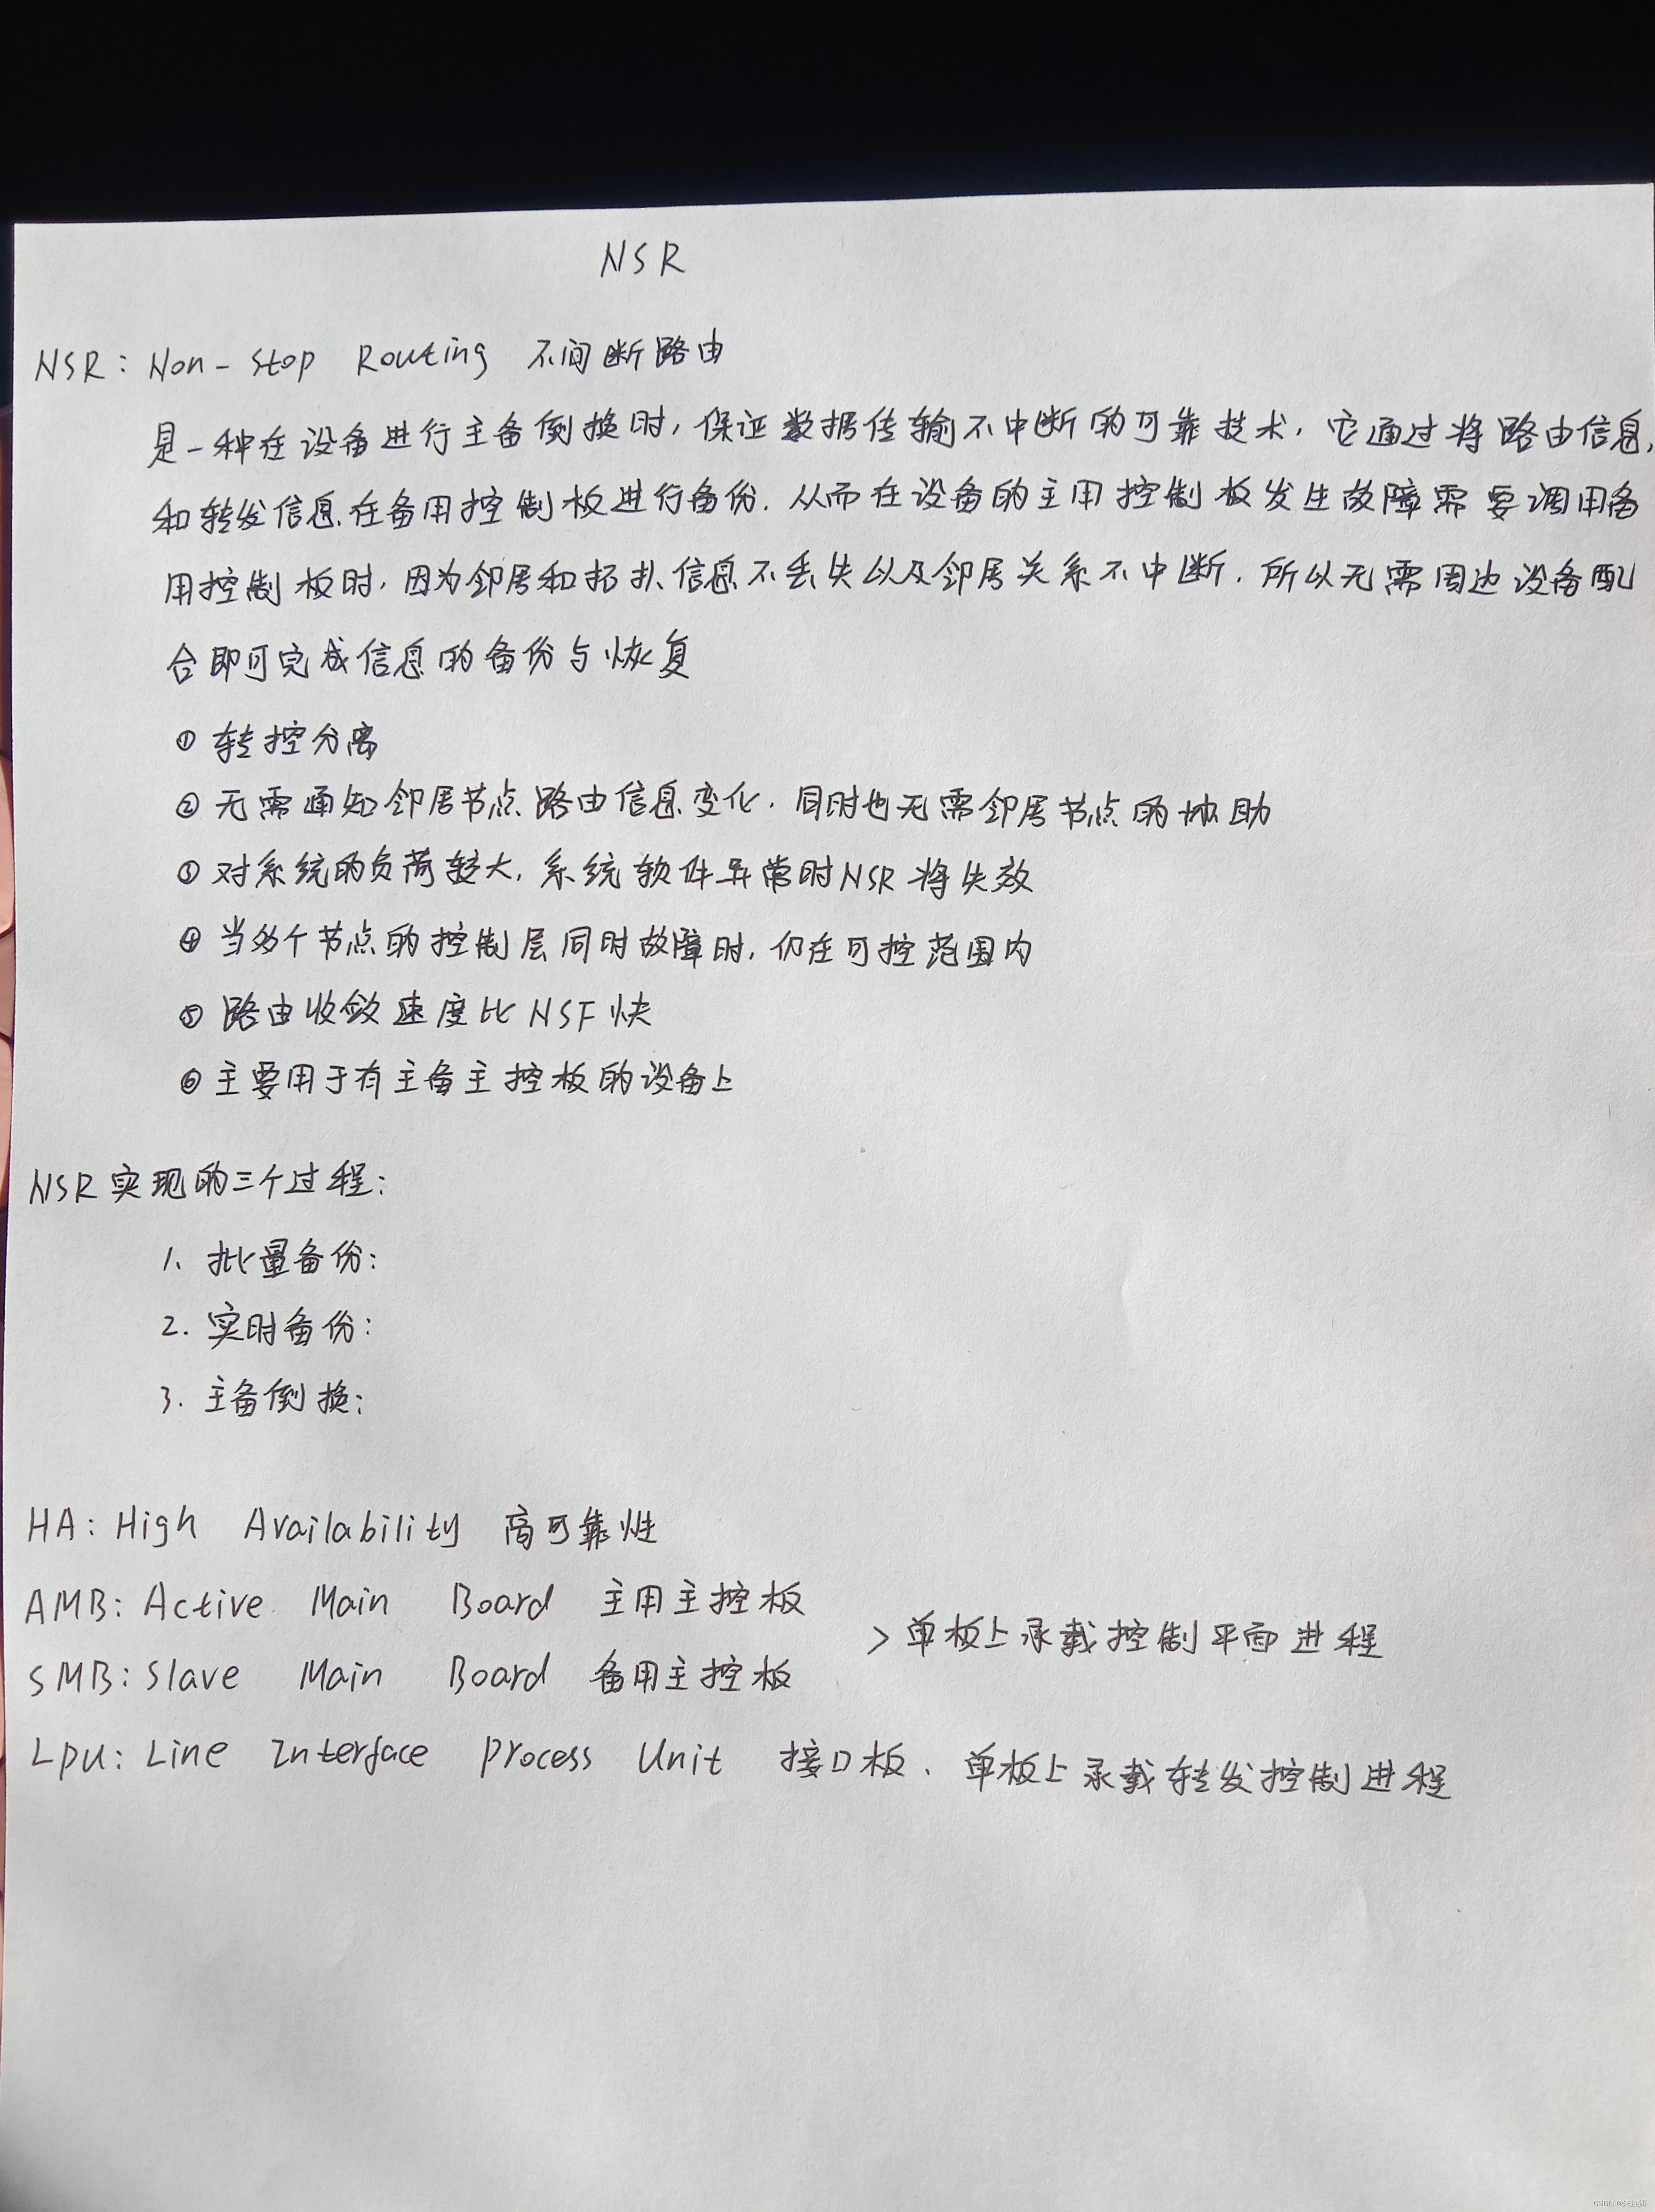 NSR
NSR: Non-Stop Routing 不间断路由
是一种在设备进行主备倒换时,保证数据传输不中断的可靠技术,它通过将路由信息,
和转发信息在备用控制板进行备份.从而在设备的主用控制板发生故障需要调用备
用控制板时,因为邻居和拓扑信息不丢失以及邻居关系不中断.所以无需周边设备配
合即可完成信息的备份与恢复
① 转控分离
② 无需通知邻居节点路由信息变化.同时也无需邻居节点的协助
③ 对系统的负荷较大,系统软件异常时NSR将失效
④ 当多个节点的控制层同时故障时,仍在可控范围内
⑤ 路由收敛速度比NSF快
⑥ 主要用于有主备主控板的设备上
NSR实现的三个过程:
1、批量备份:
2. 实时备份:
3. 主备倒换:
HA: High Availability 高可靠性
AMB: Active Main Board 主用主控板
> 单板上承载控制平面进程
SMB: Slave Main Board 备用主控板
LPU: Line Interface Process Unit 接口板、单板上承载转发控制进程